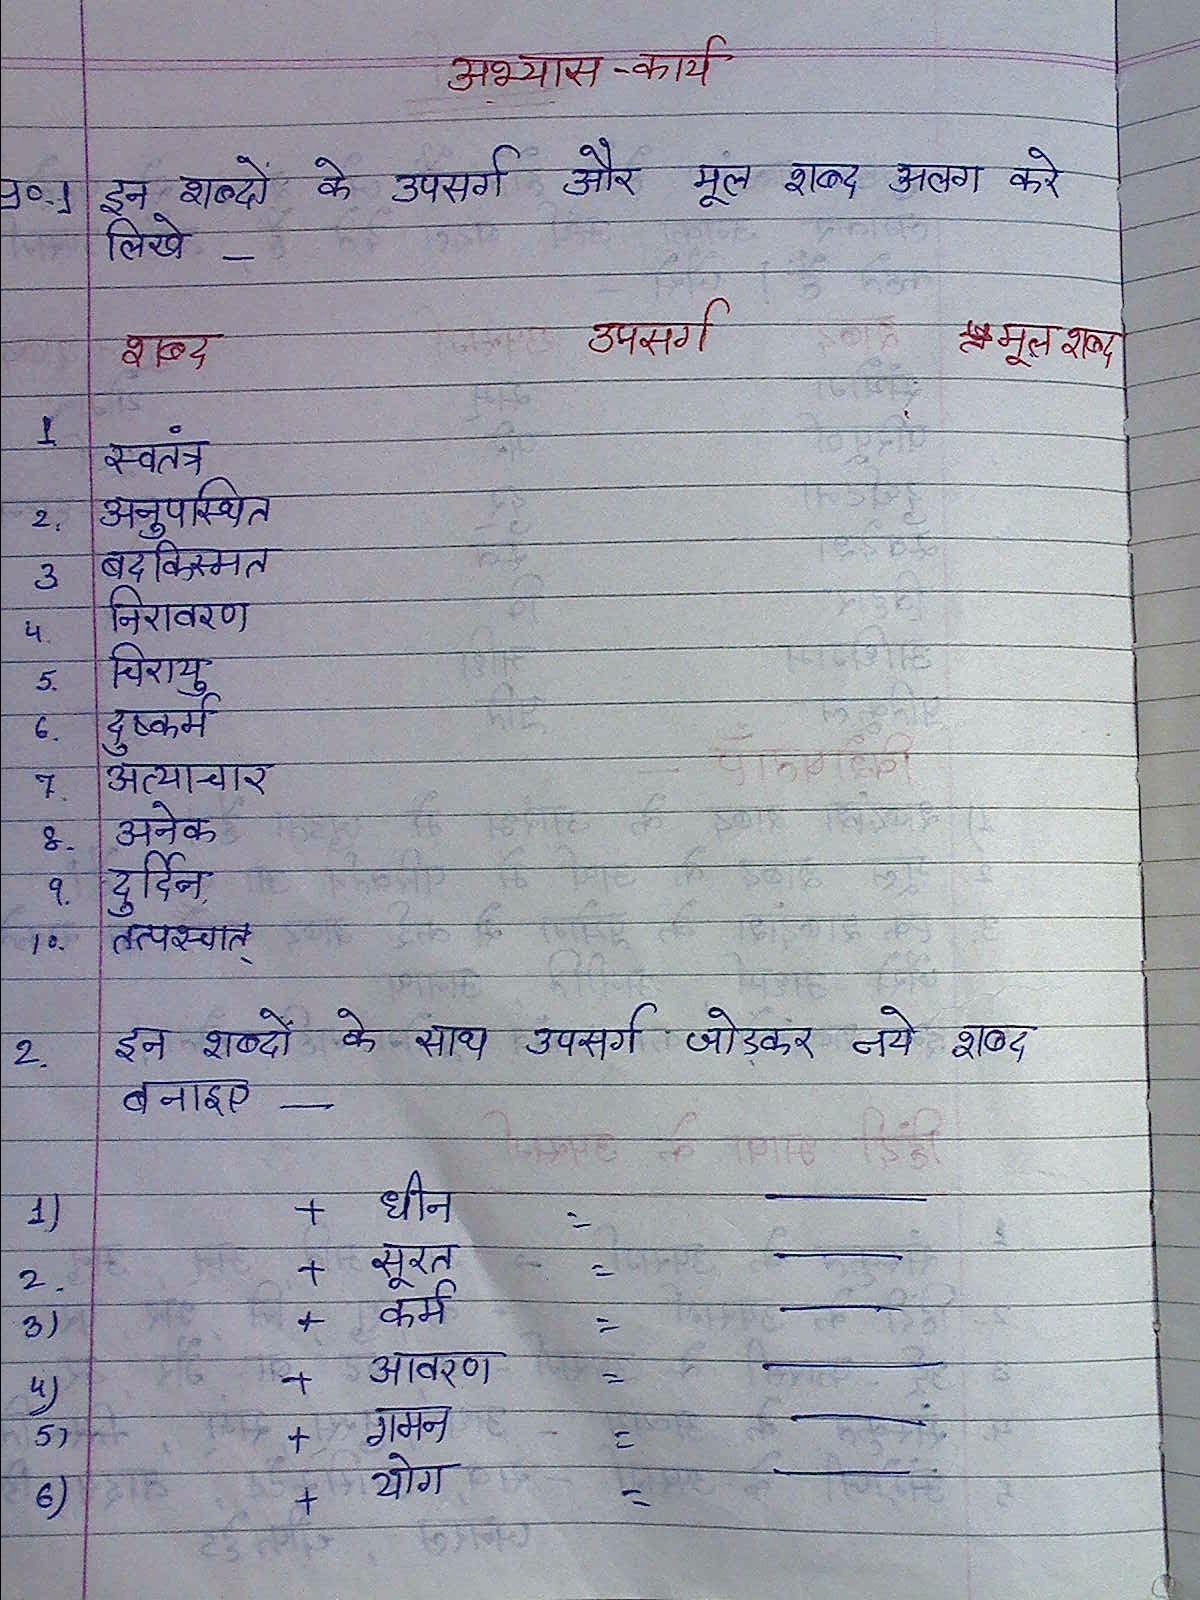 अभ्यास-कार्य
प्र०.1 इन शब्दों के उपसर्ग और मूल शब्द अलग करे
लिखे –
शब्द उपसर्ग मूल शब्द
1 स्वतंत्र
2. अनुपस्थित
3 बदकिस्मत
4. निरावरण
5. चिरायु
6. दुष्कर्म
7. अत्याचार
8. अनेक
9. दुर्दिन
10. तत्पश्चात्
2. इन शब्दों के साथ उपसर्ग जोड़कर नये शब्द
बनाइए —
1) + धीन =
2. + सूरत =
3) + कर्म =
4) + आवरण =
5) + गमन =
6) + योग =